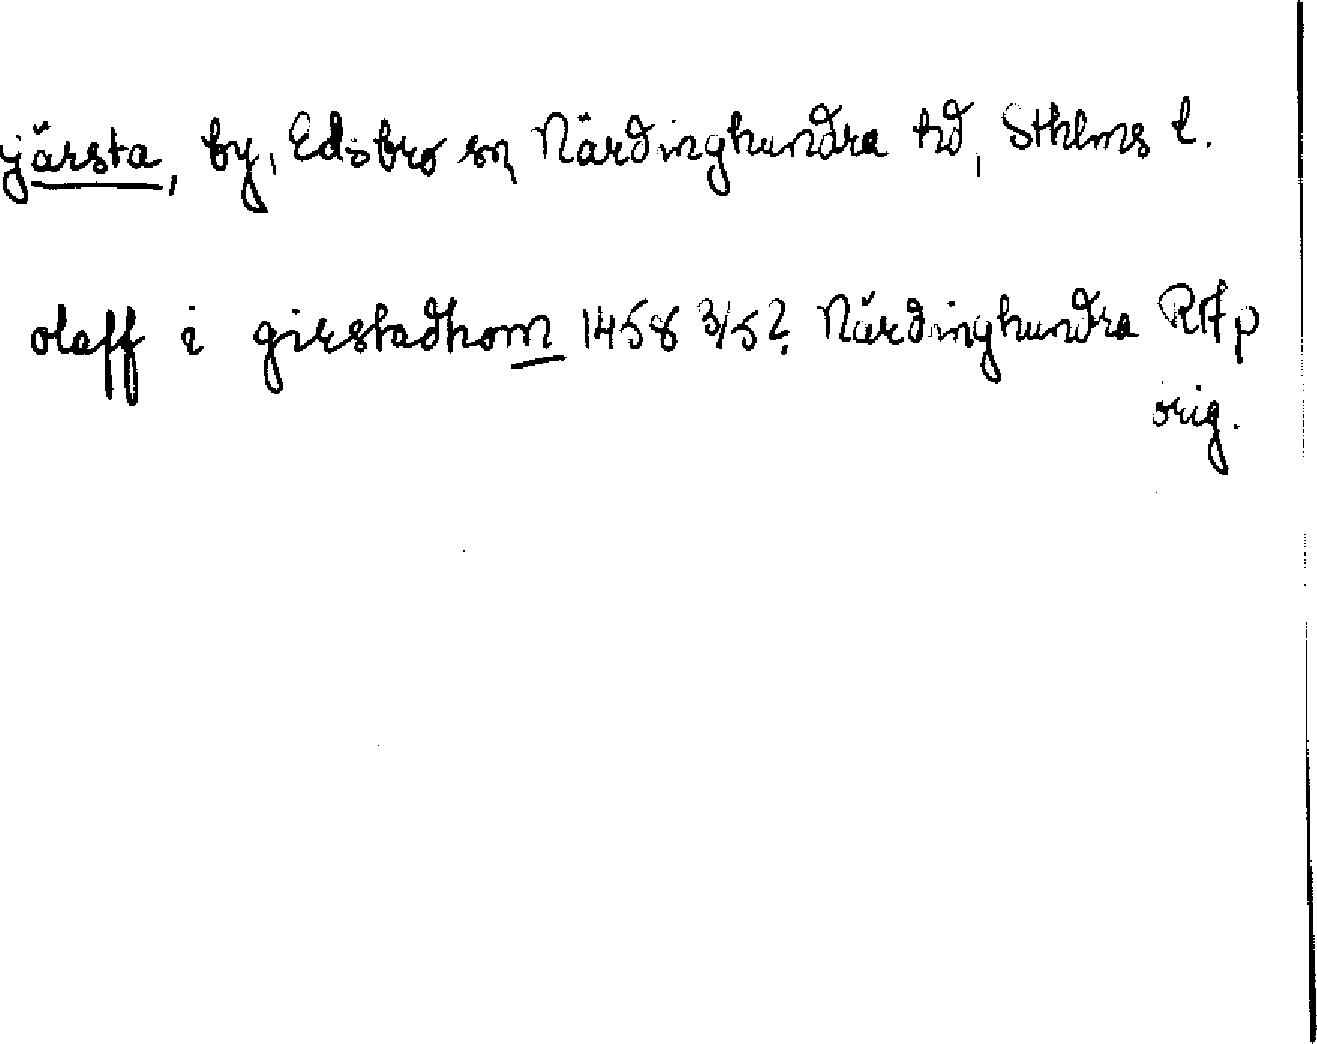 järsta, by, Edsbro sn Närdinghundra hd, Sthlms l.
olaff i girstadhom 1458 3/5? Närdinghundra RAp
orig.